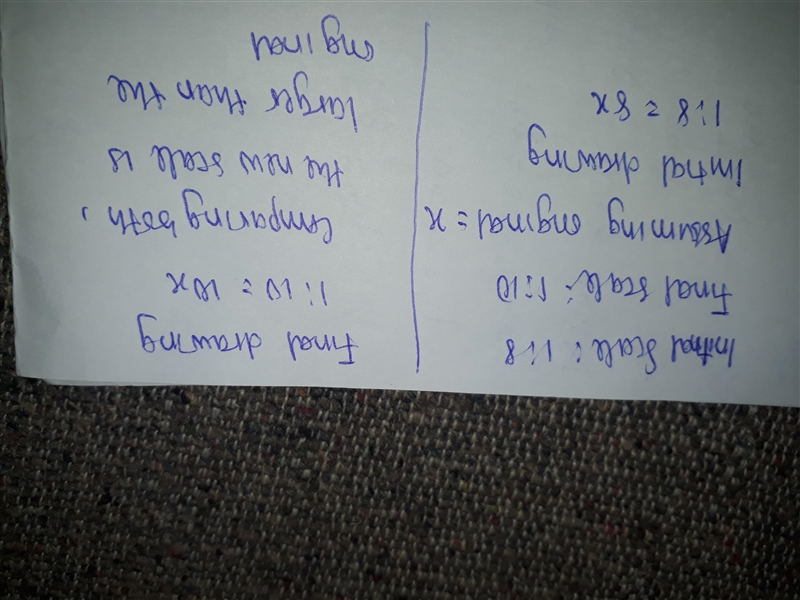 Initial Scale : 1:8
Final scale : 1:10
Assuming original = x
Initial drawing
1:8 = 8x
Final drawing
1:10 = 10x
Comparing both,
the new scale is
larger than the
original